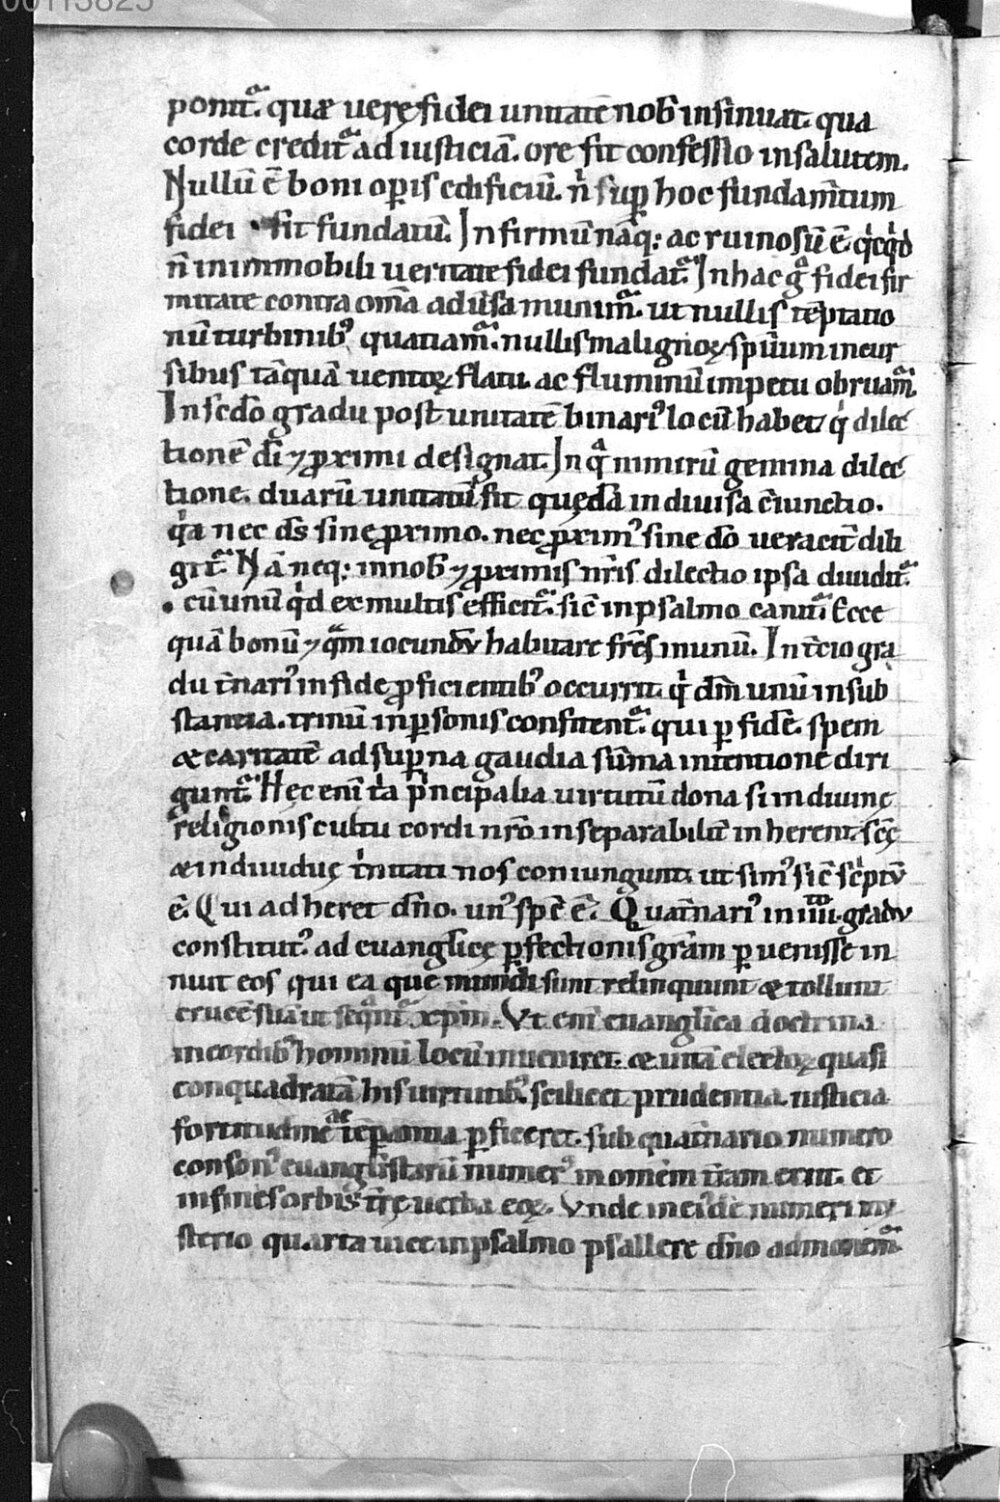 ponit̃. quæ uerę fidei unitatē nob̄ insinuat. qua
corde credit̃ ad iusticiā. ore fit confessio insalutem.
Nullū ē boni op̄is edificiū. n̄ sup̱ hoc fundam̄tum
fidei sit fundatū. Infirmū nāq; ac ruinosū ē. qͥcqͥd
n̄ inimmobili ueritate fidei fundat̃. Inhac gͦ fidei fir
mitate contra om̄a adūsa munim̃. ut nullis tēptatio
nū turbinib᷒ quatiam̃. nullis malignoꝝ sp̄uum incur
sibus tāquā uentoꝝ flatu. ac fluminū impetu obruam̃.
In sc̄do gradu post unitatē binari᷒ locū habet, qͥ dilec
tionē dī ⁊ ꝓximi designat. In qͣ nimirū gemina dilec
tione. duarū unitatū sit quędā indiuisa c̄iunctio.
qͥa nec ds̄ sine ꝓximo. nec ꝓxim᷒ sine dō ueracit̄ dili
git̃. Nā neq; innob̄ ⁊ ꝓximis nr̄is dilectio ipsa diuidit̃.
cū unū qͥd ex multis efficit̃. sic̄ inpsalmo canim᷒. Ecce
quā bonū ⁊ qͣm iocundū habitare fr̄es inunū. In t̄cio gra
du t̄nari᷒ infide ꝓficientib᷒ occurrit. qͥ dm̄ unū insub
stantia. trinū inp̱sonis confitent̃. qui p̱ fidē. spem
æ caritatē adsup̱na gaudia sūma intentione diri
gunt̃. Hęc eni t̄a pͥncipalia uirtutū dona si indiuinę
religionis cultu cordi nr̄o inseparabilit̄ inherent. sc̄ę
æ indiuiduę tͥnitati nos coniungunt. ut sim᷒ sic̄ scͥptū
ē. Qui adheret dn̄o. un᷒ sp̄c ē. Quat̄nari᷒ in iiii. gradu
constitut᷒ ad euangl̄icę p̱fectionis gr̄am p̱uenisse in
nuit eos qui ea que mundi sunt relinquunt æ tollunt
crucē suā ut seqͣnt̃ xp̄m. Vt enī euangl̄ica doctrina
incordib᷒ hominū locū inueniret. æ uitā electoꝝ quasi
conquadratā his uirtutib᷒. scilicet prudentia. iusticia
fortitudine ac tēp̱antia p̱ficeret. sub quat̄nario numero
conson᷒ euangl̄istarū numer᷒ in omēm t̄ram exiit. et
infines orbis t̄rę uerba eoꝝ. Vnde in ei᷒dē numeri my
sterio quarta uice inpsalmo psallere dn̄o admonem̃.